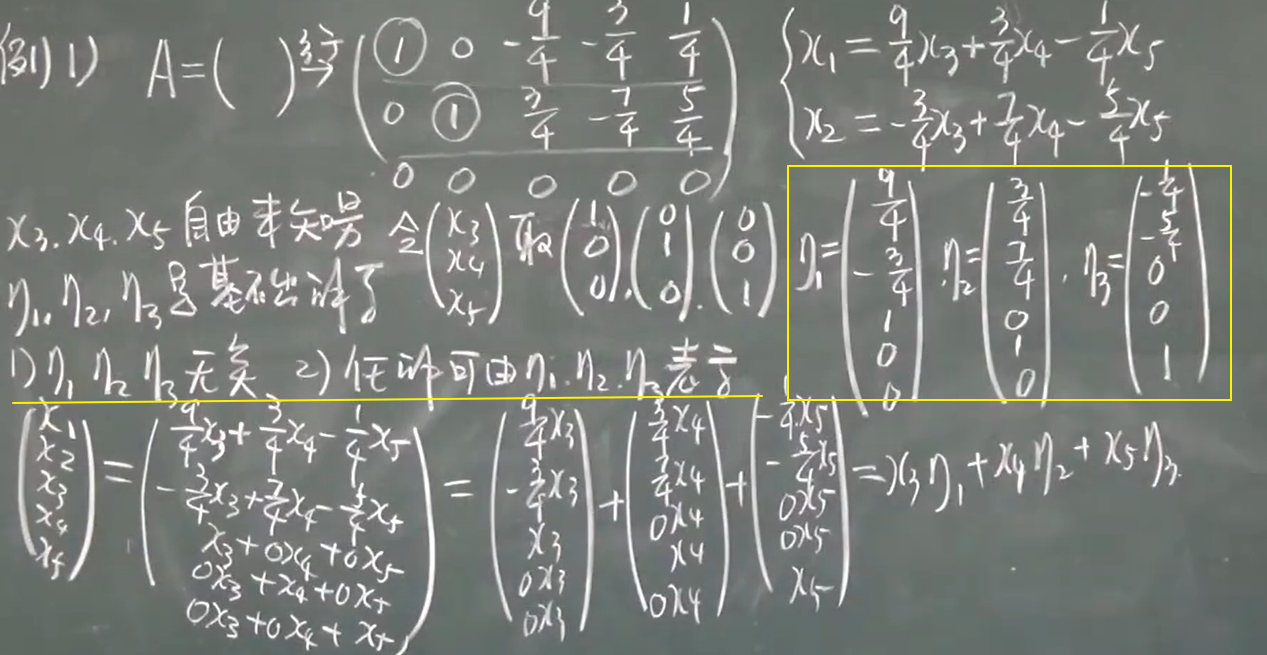 例1) A=( ) 行→ ( 1 0 -9/4 -3/4 1/4
0 1 3/4 -7/4 5/4
0 0 0 0 0 )
{ x₁ = 9/4x₃+3/4x₄-1/4x₅
x₂ = -3/4x₃+7/4x₄-5/4x₅
x₃.x₄.x₅ 自由未知量 令(x₃ x₄ x₅) 取 (1 0 0), (0 1 0). (0 0 1)
η₁=(9/4 -3/4 1 0 0) .η₂=(3/4 7/4 0 1 0) . η₃=(-1/4 -5/4 0 0 1)
η₁, η₂, η₃是基础解系
1) η₁ η₂ η₃无关 2) 任一解可由η₁.η₂.η₃表示
(x₁ x₂ x₃ x₄ x₅) = (9/4x₃+3/4x₄-1/4x₅ -3/4x₃+7/4x₄-5/4x₅ x₃+0x₄+0x₅ 0x₃+x₄+0x₅ 0x₃+0x₄+x₅) = (9/4x₃ -3/4x₃ x₃ 0x₃ 0x₃) + (3/4x₄ 7/4x₄ 0x₄ x₄ 0x₄) + (-1/4x₅ -5/4x₅ 0x₅ 0x₅ x₅) = x₃η₁+x₄η₂+x₅η₃.